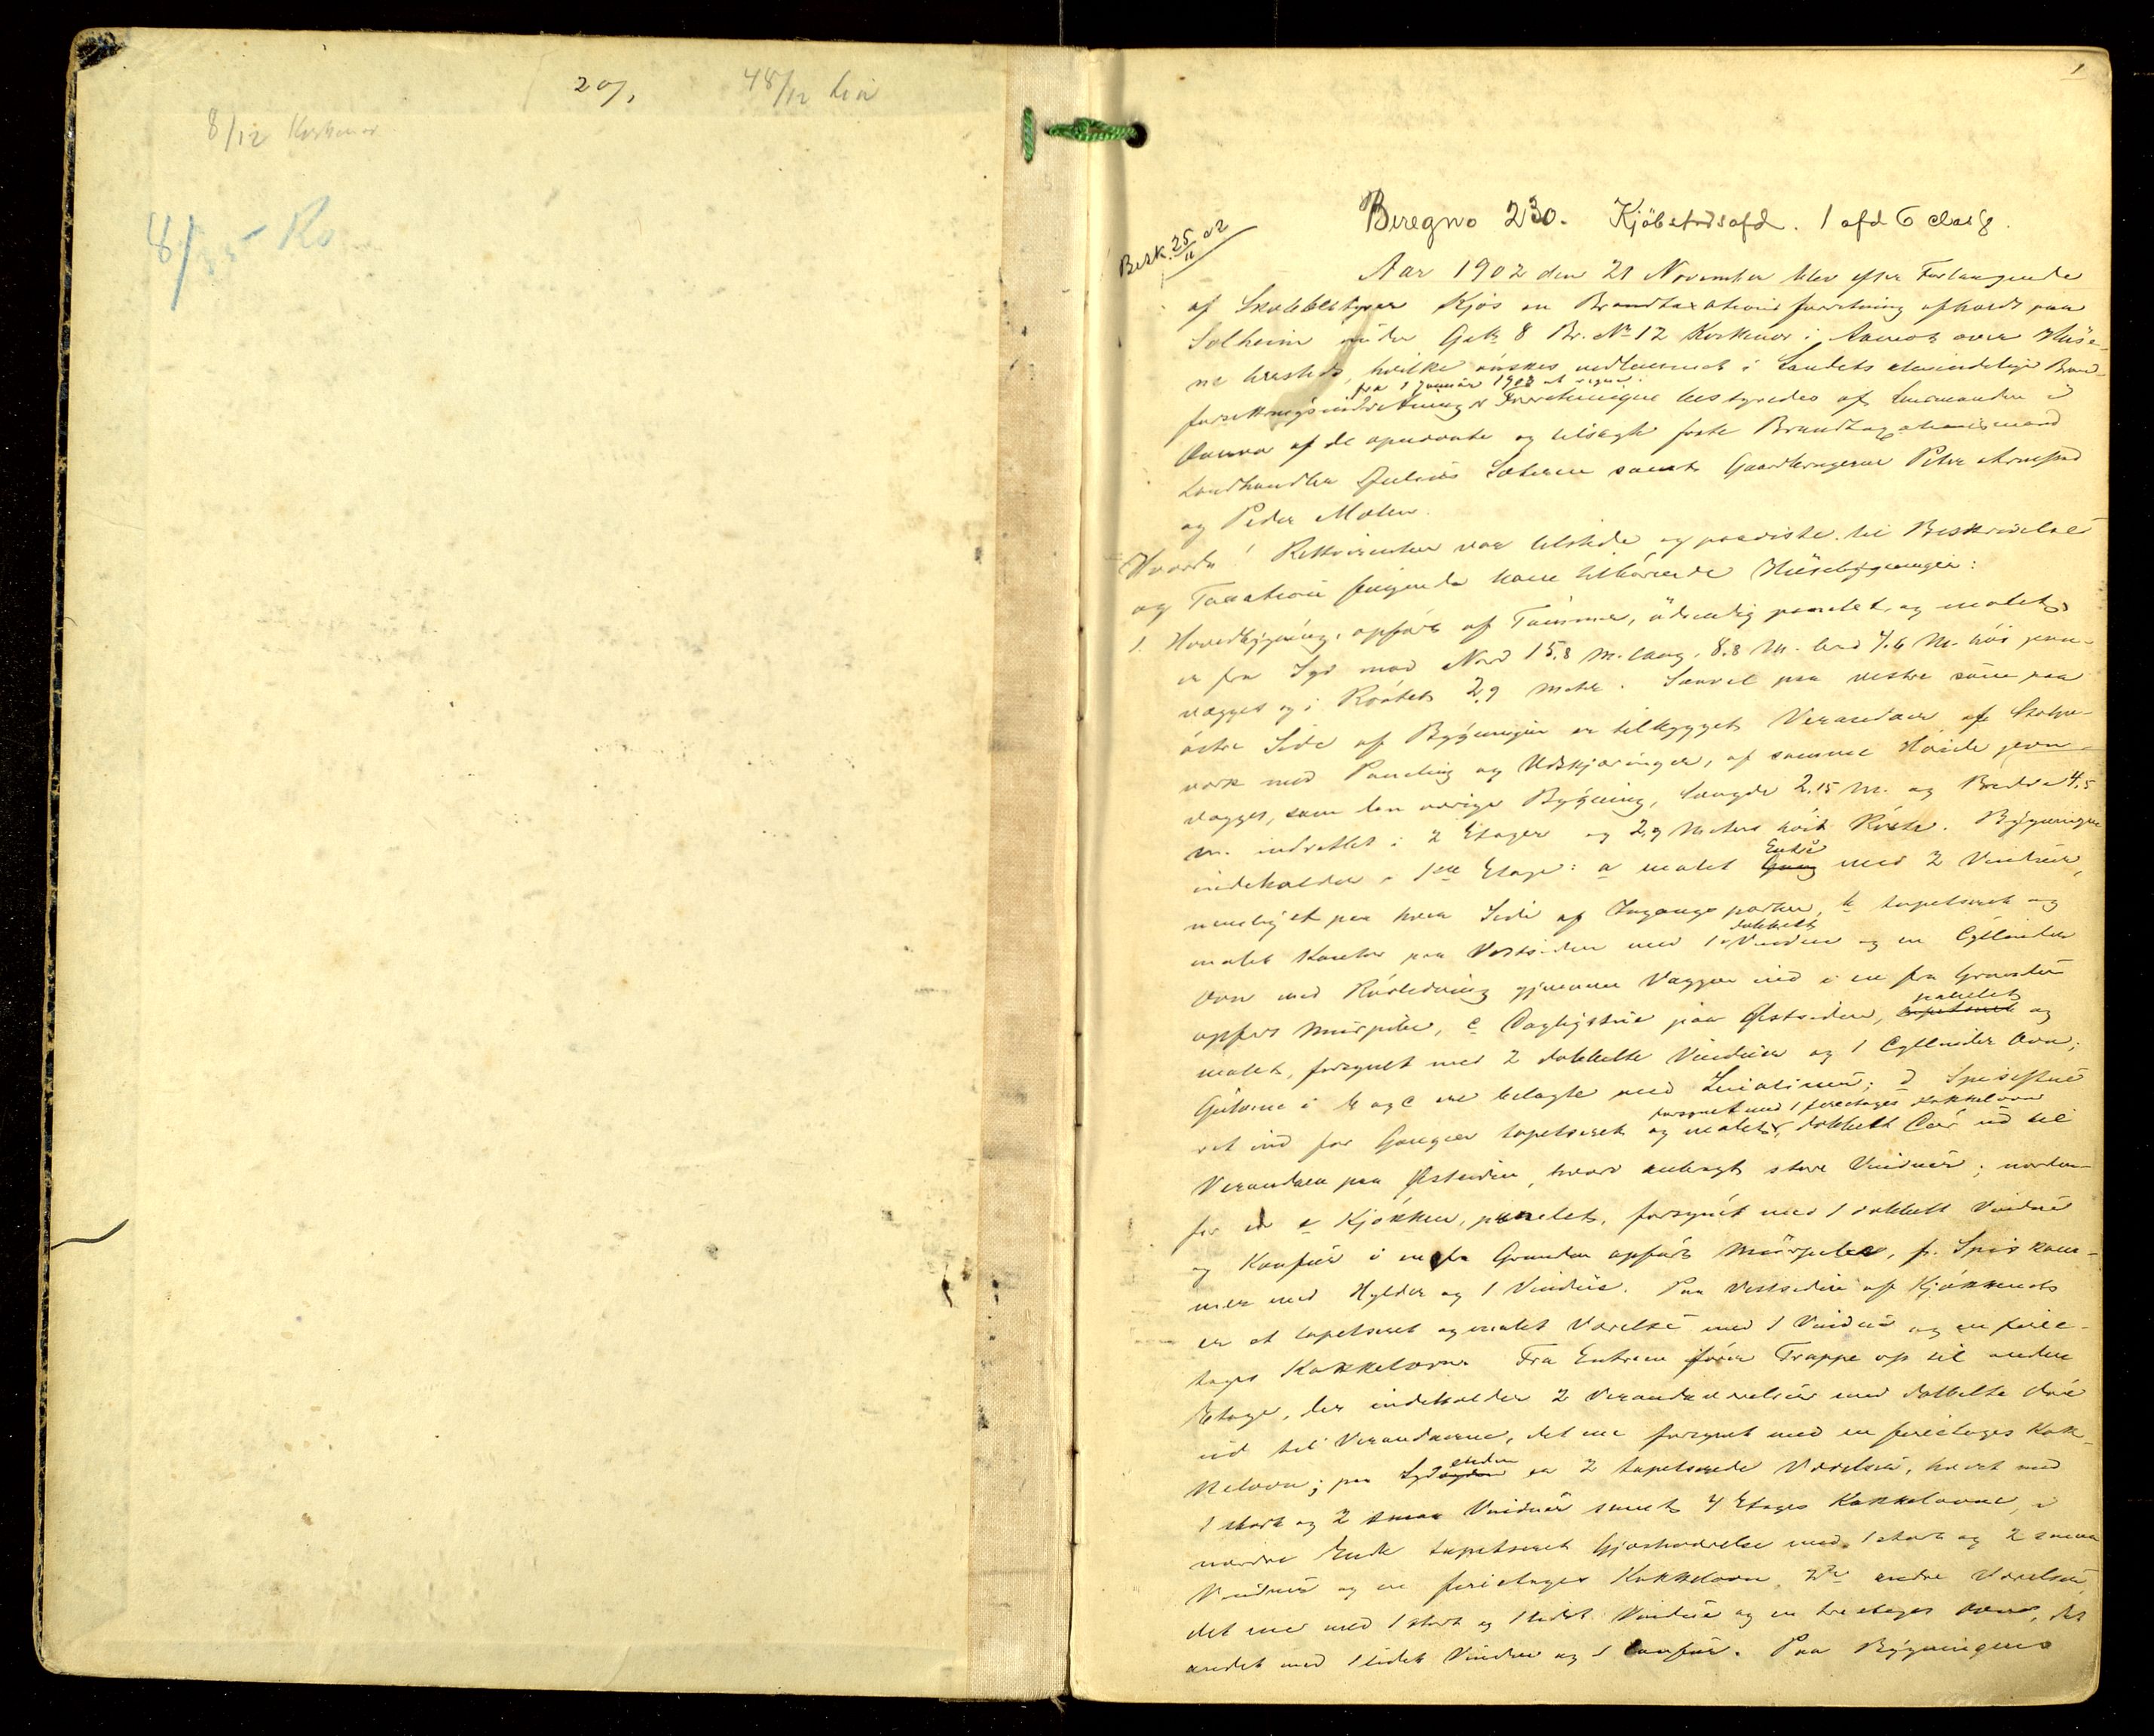 20/,
48/12 Lia
8/12 Korkenor
8/35 Ro
1
Beregno 230. Kjöbstadsafd. 1 afd 6 clas 8.
Besk. 25/11 02
Aar 1902 den 21 November blev efter Forlangende
af Skolebestyrer Kjös en Brandtaxationsforretning afholdt paa
Solheim under Gok 8 Br. No 12 Korkenor i Aamot over Huse-
ne hersteds, hvilke ønskes indlemmet i Landets almindelige Brand-
fra 1 Januar 1903 at regne.
forsikringsindretning. Forretningen bestyredes af Lensmanden i
Overvær af de opnævnte og tilsagte faste Brandtaxationsmænd
Landhandler Julius Sætere samt Gaardbrugerne Peter
og Peder Moten.
Hvorda! Rekvirenten var tilstede og paaviste til Beskrivelse
og Taxation følgende ham tilhørende Husebygninger:
1. Hovedbygning, opført af Tømmer, udvendig panelet og malet,
er fra Syd mod Nord 15,8 M. lang, 8.8 M. bred 7.6 M. høi jevn-
vægges og i Røstet 2,9 Meter. Saavel paa vestre som paa
østre Side af Bygningen er tilbygget Verandaer af Stolpe-
værk med Paneling og Udskjæringer, af samme Høide jevn-
vægges, som den øvrige Bygning, Længde 2.15 M. og Bredde 4,5
M. indrettet i 2 Etager og 2,9 Meters høit Røste. Bygningen
Entré
indeholder i 1ste Etage: a malet Gang med 2 Vinduer,
nemlig et paa hver Side af Indgangsporten, b tapetseret og
dobbelt
malet Kontor paa Vestsiden med 1 Vindue og en Cylinder
Ovn med Rørledning gjennem Væggen ind i en fra Grunden
panelet
opført Murpibe, c Dagligstue paa Østsiden, tapetseret og
malet, forsynet med 2 dobbelte Vinduer og 1 Cylinder Ovn;
Gulvene i b og c ere belagte med Linolium; d Spisestue
forsynet med 1 fireetages Kakkelovn
ret ind for Gangen tapetseret og malet, dobbelt Dør ud til
Verandaen paa Østsiden, hvori anbragt store Vinduer; norden-
for er e Kjøkken, panelet, forsynet med 1 dobbelt Vindue
og Komfur i en fra Grunden opført Murpibe, f. Spiskam-
mer med Hylder og 1 Vindue. Paa Vestsiden af Kjøkkenet
er et tapetseret og malet Værelse med 1 Vindue og en fire-
tages Kakkelovn. Fra Entreen fører Trappe op til anden
Etage, der indeholder 2 Verandaværelser med dobbelte Døre
ud til Verandaerne, det ene forsynet med en fireetages Kak-
enden
kelovn; paa Syd er 2 tapetserede Værelser, hvert med
1 stort og 2 smaa Vinduer samt 4 Etages Kakkelovne, i
nordre Ende tapetseret Gjæsteværelse med 1 stort og 2 smaa
Vinduer og en fireetages Kakkelovn, 2de andre Værelser,
det ene med 1 stort og 1 lidet Vindue og en treetages Ovn, det
andet med 1 lidet Vindue og 1 Komfur. Paa Bygningens